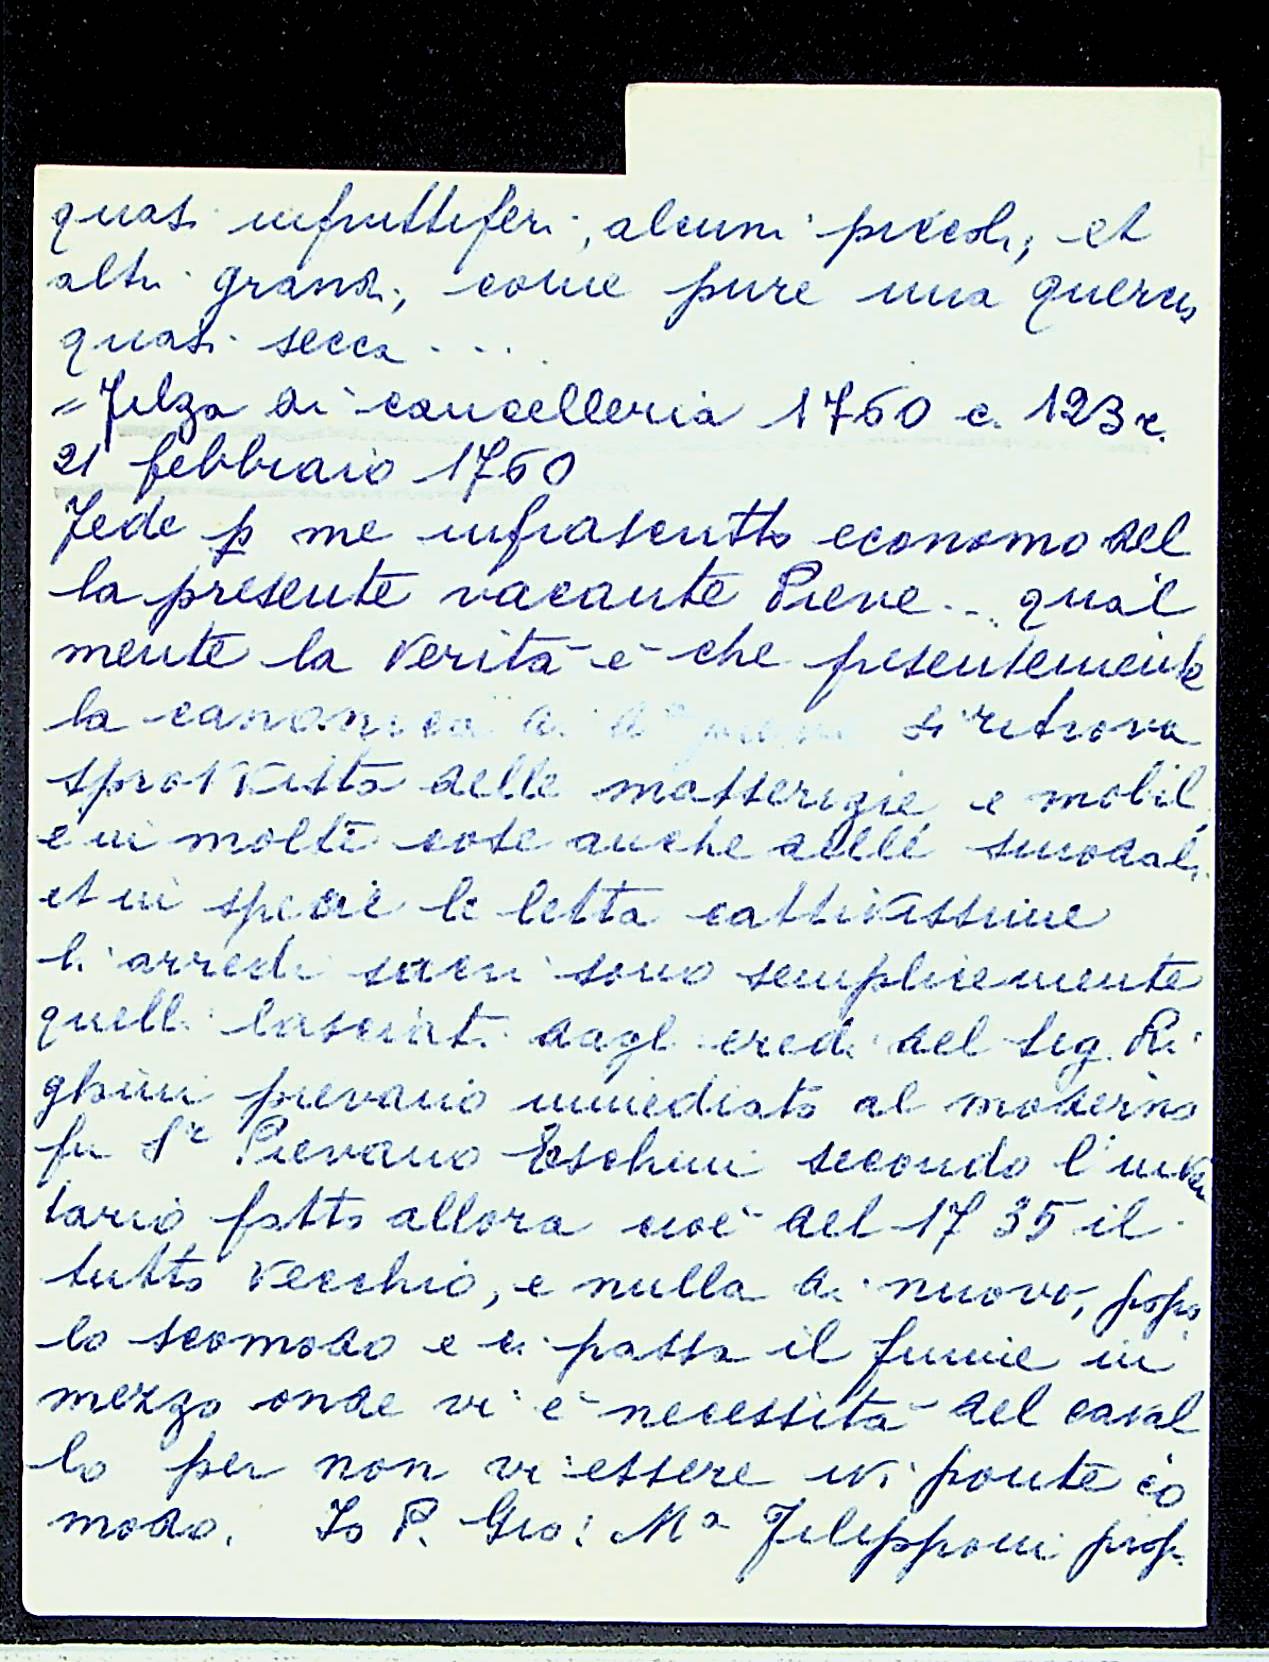 quasi infruttiferi, alcuni piccoli, et
altri grandi, come pure una quercia
quasi secca ....
= Filza di cancelleria 1760 c. 123 r.
21 febbraio 1760
Fede p me infrascritto economo del
la presente vacante Pieve ... qual
mente la verità è che presentemente
la canonica di si ritrova
sprovvista delle masserizie e mobili
e in molte cose anche delle sinodali
et in specie le letta cattivissime
li arredi sacri sono semplicemente
quelli lasciati dagl eredi del Sig. Ri
ghini pievano immediato al moderno
fu Sr Pievano Eschini secondo l'inven
tario fatto allora cioè del 1735 il
tutto vecchio, e nulla di nuovo, popo
lo scomodo e ci passa il fiume in
mezzo onde vi è necessità del caval
lo per non vi essere ivi ponte co
modo. Io P. Gio: Mª Filipponi prop.